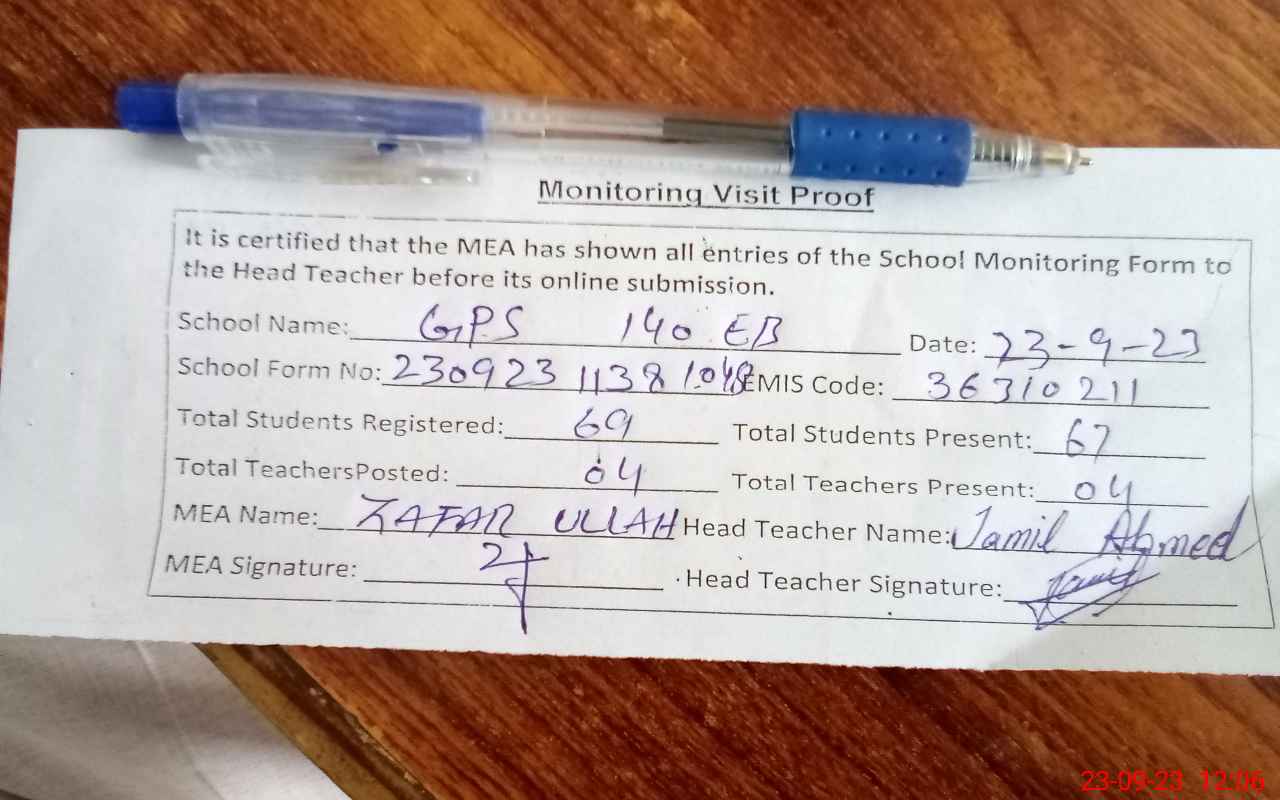 Monitoring Visit Proof
It is certified that the MEA has shown all entries of the School Monitoring Form to
the Head Teacher before its online submission.
School Name: GPS 140 EB Date: 23-9-23
School Form No: 230923 1138 1048 EMIS Code: 36310211
Total Students Registered: 69 Total Students Present: 67
Total TeachersPosted: 04 Total Teachers Present: 04
MEA Name: ZAFAR ULLAH Head Teacher Name: Jamil Ahmed
MEA Signature: Head Teacher Signature:
23-09-23 12:06